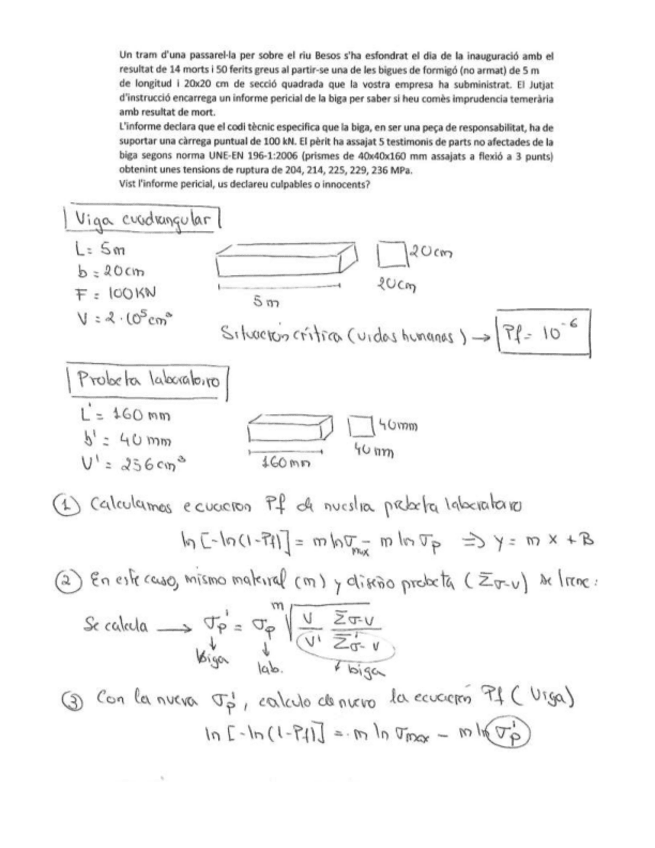 Un tram d'una passarel·la per sobre el riu Besos s'ha esfondrat el dia de la inauguració amb el
resultat de 14 morts i 50 ferits greus al partir-se una de les bigues de formigó (no armat) de 5 m
de longitud i 20x20 cm de secció quadrada que la vostra empresa ha subministrat. El Jutjat
d'instrucció encarrega un informe pericial de la biga per saber si heu comès imprudencia temerària
amb resultat de mort.
L'informe declara que el codi tècnic especifica que la biga, en ser una peça de responsabilitat, ha de
suportar una càrrega puntual de 100 kN. El pèrit ha assajat 5 testimonis de parts no afectades de la
biga segons norma UNE-EN 196-1:2006 (prismes de 40x40x160 mm assajats a flexió a 3 punts)
obtenint unes tensions de ruptura de 204, 214, 225, 229, 236 MPa.
Vist l'informe pericial, us declareu culpables o innocents?
Viga cuadrangular
L= 5m
b = 20cm
F = 100KN
V = 2·10⁵cm³
5m
20cm
20cm
Situación crítica (vidas humanas) → Pf = 10⁻⁶
Probeta laboratorio
L' = 160 mm
b' = 40 mm
V' = 256cm³
160mm
40mm
40mm
① Calculamos ecuacion Pf de nuestra probeta laboratorio
ln [-ln(1-Pf)] = m ln σmax - m ln σp ⇒ y = m x + B
② En este caso, mismo material (m) y diseño probeta (Σσ-v) se tiene:
Se calcula → σp' = σp m√(V/V' Σσ-v/Σ'σ-v)
biga
lab.
biga
③ Con la nueva σp', calculo de nuevo la ecuación Pf (Viga)
ln [-ln(1-Pf)] = m ln σmax - m ln σp'